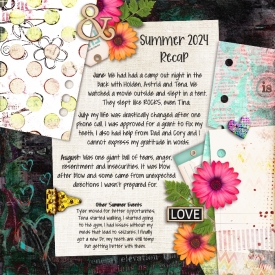 &
Summer 2024
Recap
June: We had had a camp out night in the
back with Holden, Astrid and Tena. We
watched a movie outside and slept in a tent.
They slept like ROCKS, even Tina.
July my life was drastically changed after one
phone call. I was approved for a grant to fix my
teeth, I also had help from Dad and Cory and I
cannot express my gratitude in words.
August: Was one giant ball of tears, anger,
resentment and insecurities. It was blow
after blow and some came from unexpected
directions I wasn't prepared for.
Other Summer Events
Tyler moved for better opportunities.
Tena started walking, I started going
to the gym, I had issues without my
meds that lead to seizures. I finally
got a new Dr, my teeth are still temp
but getting better with them.
LOVE